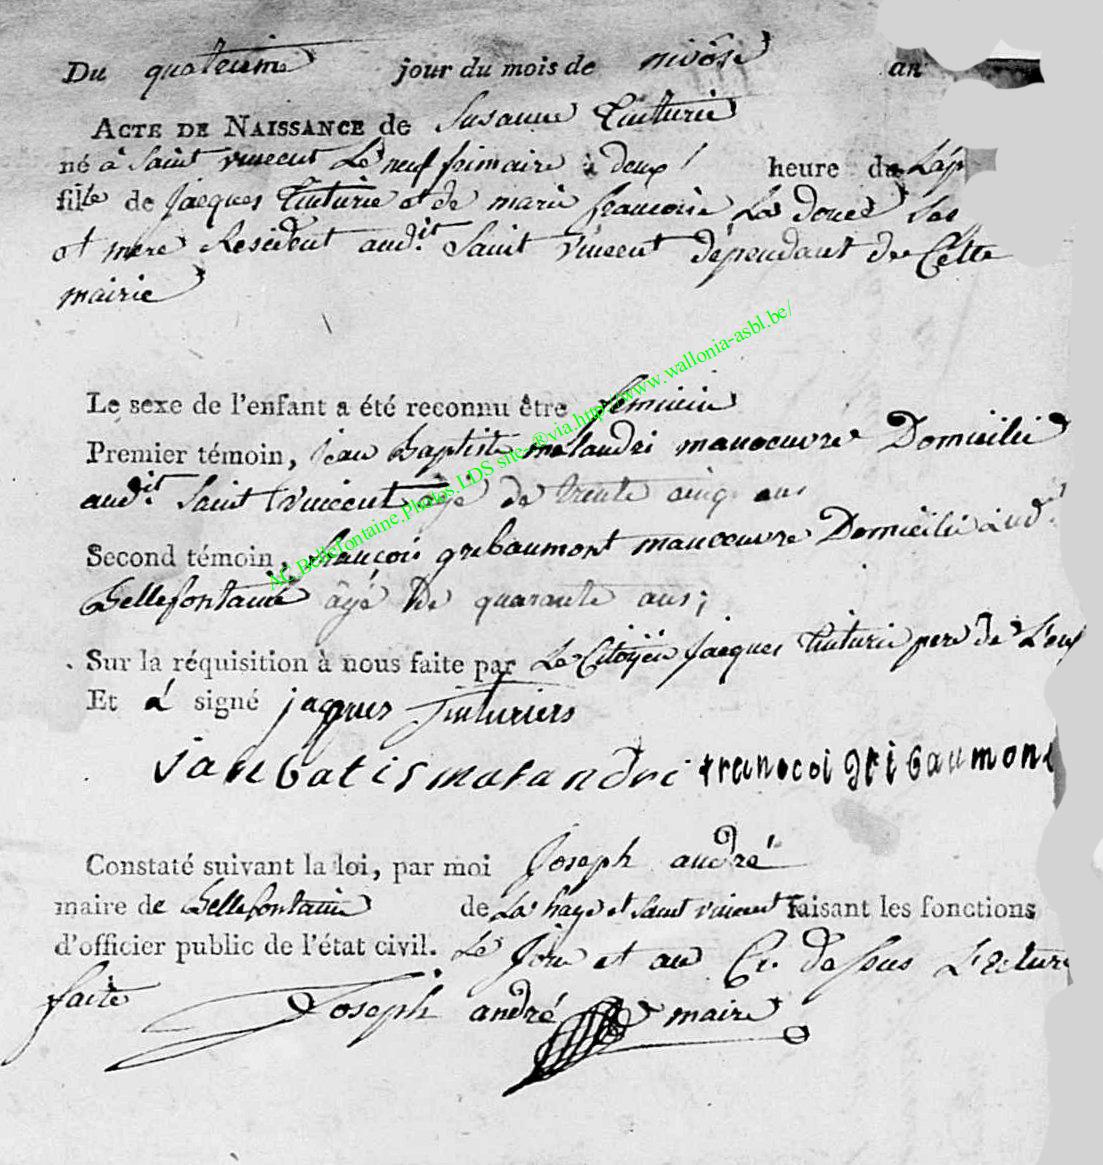 Du quatrieme jour du mois de nivôse an
ACTE DE NAISSANCE de Susanne Tinturie
né à Saint vincent Le neuf frimaire à deux heure du Lap
fille de jacques Tinturie et de marie francoise La douce Ses
et mere Resident audit Saint Vincent dépendant de Cette
mairie
Le sexe de l'enfant a été reconnu être feminin
Premier témoin, jean Baptiste malandri manoeuvre Domicilié
audit Saint Vincent âgé de trente cinq ans
Second témoin, francois gribaumont manoeuvre Domicilié aud.
Bellefontaine âgé de quarante ans;
Sur la réquisition à nous faite par Le Citoÿen jacques Tinturie pere de L'enf
Et à signé jaques Tinturiers
janbatismalandri francoi gribaumont
Constaté suivant la loi, par moi Joseph andré
maire de Bellefontaine de La haye et Saint vincent faisant les fonctions
d'officier public de l'état civil. Le jour et an Cy. desous Lecture
faite Joseph andré maire
AC.Bellefontaine.Photos.LDS site-®via.http://www.wallonia-asbl.be/